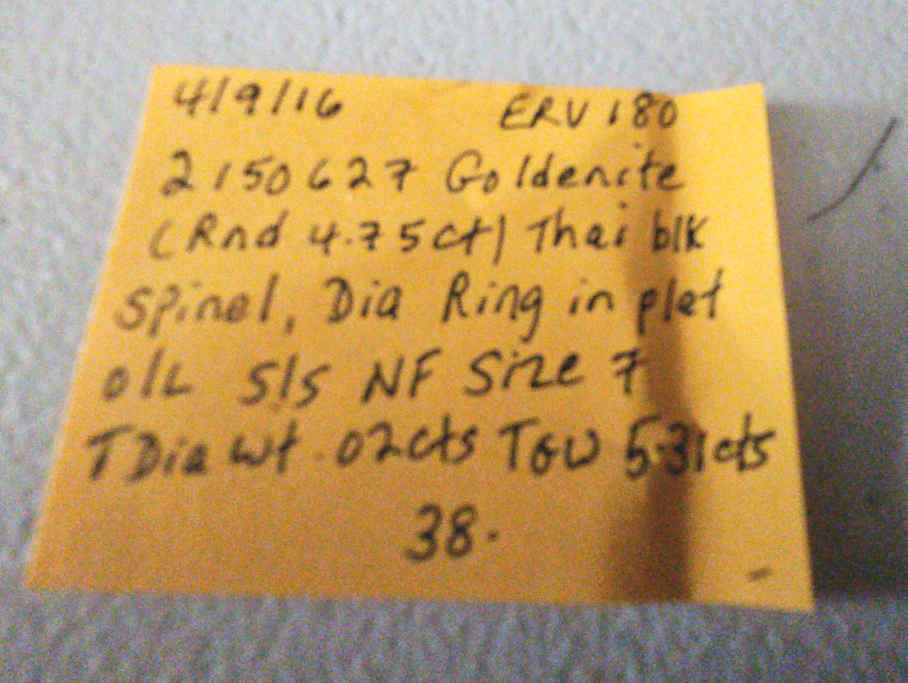 4/9/16 ERV 180
2150627 Goldenite
(Rnd 4.75ct) Thai blk
Spinel, Dia Ring in plat
o/L S/S NF Size 7
T Dia Wt .02cts TGW 5.31cts
38.